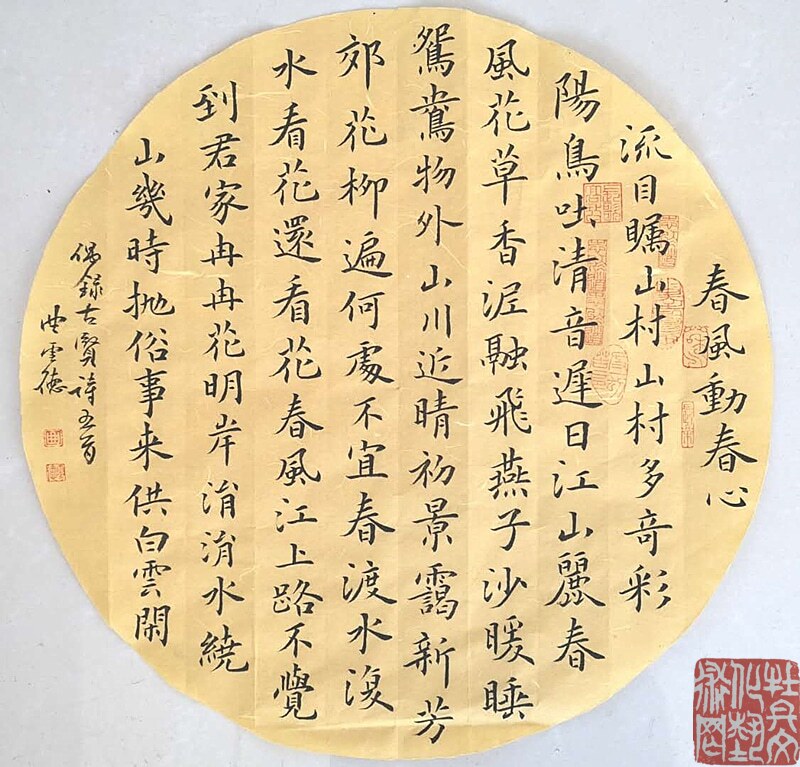 春風動春心
流目矚山村山村多奇彩
陽鳥吐清音遲日江山麗春
風花草香泥融飛燕子沙暖睡
鴛鴦物外山川近晴初景靄新芳
郊花柳遍何處不宜春渡水復
水看花還看花春風江上路不覺
到君家冉冉花明岸涓涓水繞
山幾時拋俗事来供白雲閑
偶録古賢詩五首
曲雲德